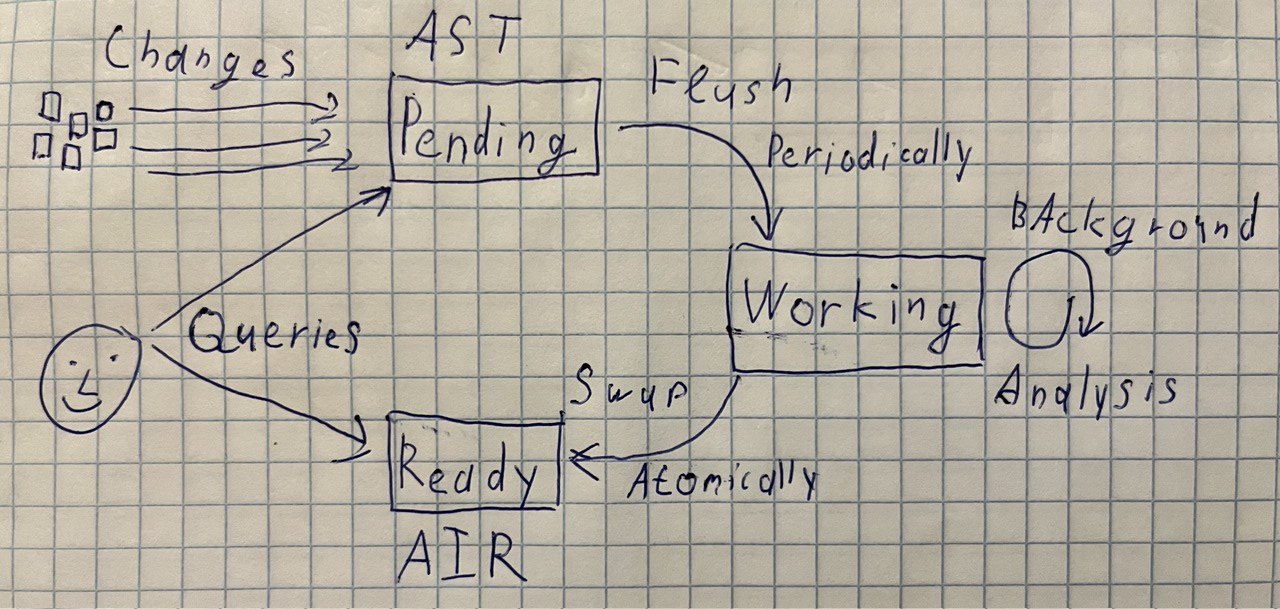 Changes
AST
Pending
Flush
Periodically
BAckground
Working
Queries
Swap
Analysis
Ready
Atomically
AIR